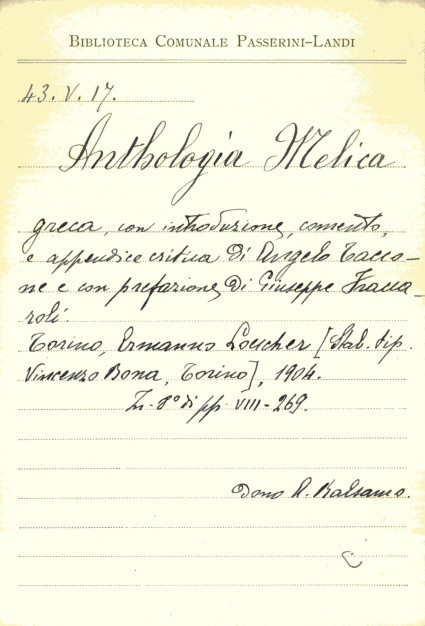 BIBLIOTECA COMUNALE PASSERINI-LANDI
43. V. 17.
Anthologia Melica
greca, con introduzione, comento,
e appendice critica di Angelo Tacco-
ne e con prefazione di Giuseppe Fracca-
roli.
Torino, Ermanno Loescher [Stab. tip.
Vincenzo Bona, Torino], 1904.
In-8° di pp. VIII-269.
Dono A. Balsamo.